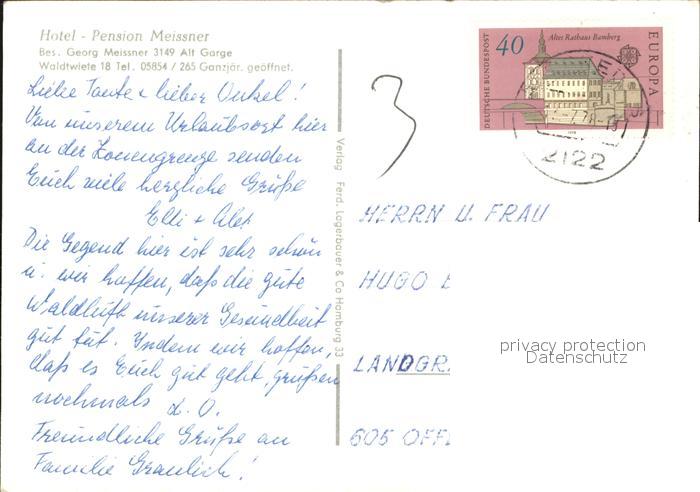 Hotel - Pension Meissner
Bes. Georg Meissner 3149 Alt Garge
Waldtwiete 18 Tel. 05854 / 265 Ganzjär. geöffnet.
Liebe Tante + lieber Onkel!
Von unserem Urlaubsort hier
an der Zonengrenze senden
Euch viele herzliche Grüße
Elli + Alex
Die Gegend hier ist sehr schön
u. wir hoffen, daß die gute
Waldluft unserer Gesundheit
gut tut. Indem wir hoffen,
daß es Euch gut geht, grüßen
nochmals d. O.
Freundliche Grüße an
Familie Graulich!
Verlag Ferd. Lagerbauer & Co Hamburg 33
3
DEUTSCHE BUNDESPOST
40
Altes Rathaus Bamberg
EUROPA
1978
2122
HERRN U. FRAU
HUGO
LANDGR.
605 OFF
privacy protection
Datenschutz